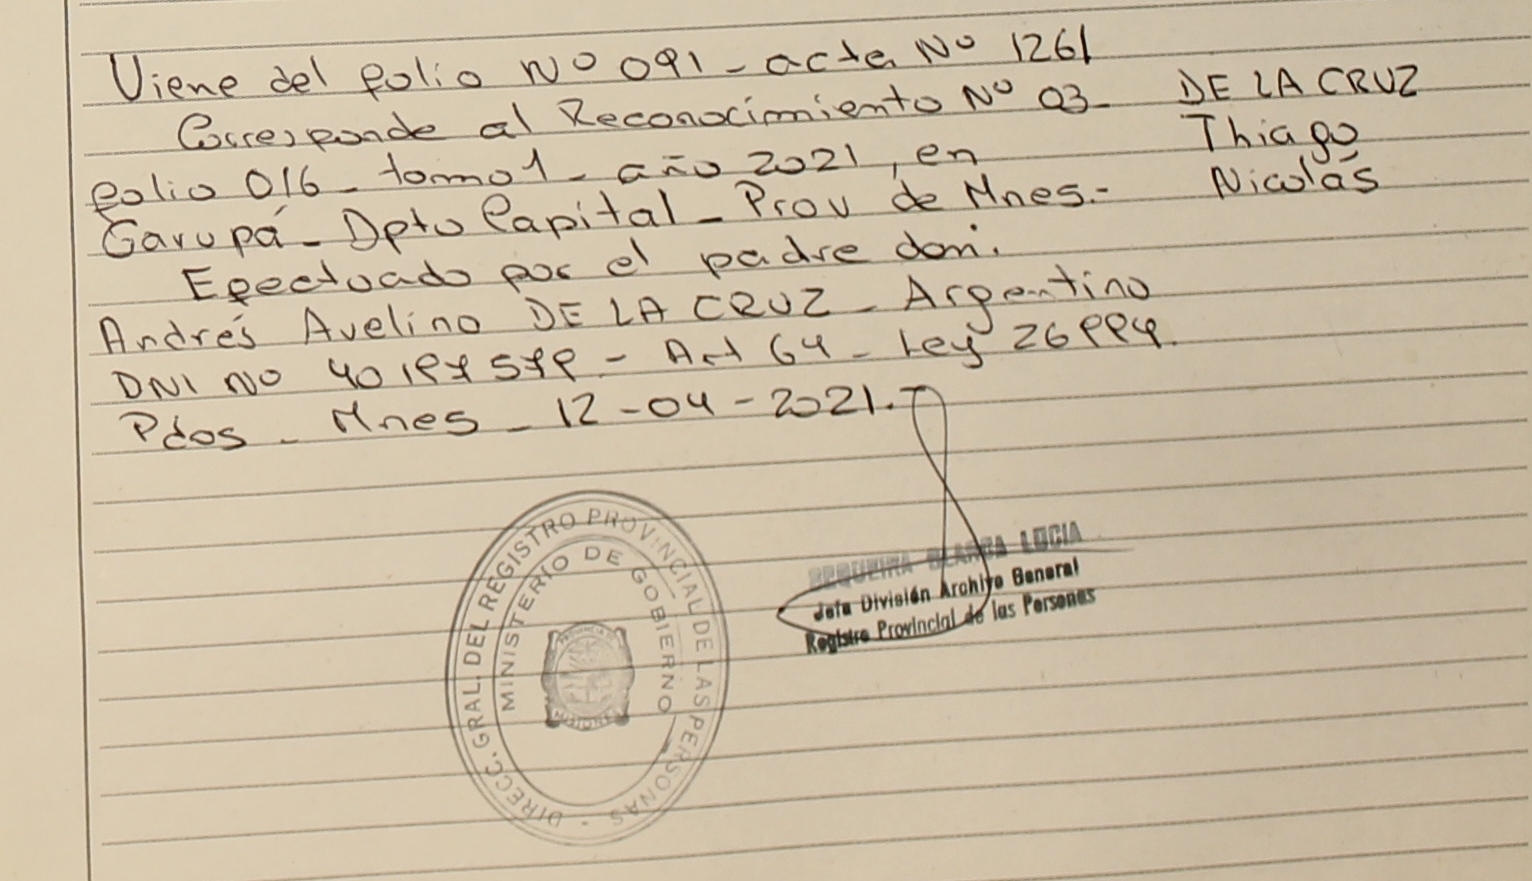 Viene del folio Nº 091 - acta Nº 1261
Corresponde al Reconocimiento Nº 03-
folio 016 - tomo 1 - año 2021, en
Garupá - Dpto Capital - Prov de Mnes.-
Efectuado por el padre don:
Andrés Avelino DE LA CRUZ - Argentino
DNI Nº - Art 64 - Ley 26994.
Pdos - Mnes - 12-04-2021.-
DE LA CRUZ
Thiago
Nicolás
DIRECC. GRAL. DEL REGISTRO PROVINCIAL DE LAS PERSONAS -
MINISTERIO DE GOBIERNO
PROVINCIA DE
MISIONES
SEQUEIRA BLANCA LUCIA
Jefa División Archivo General
Registro Provincial de las Personas